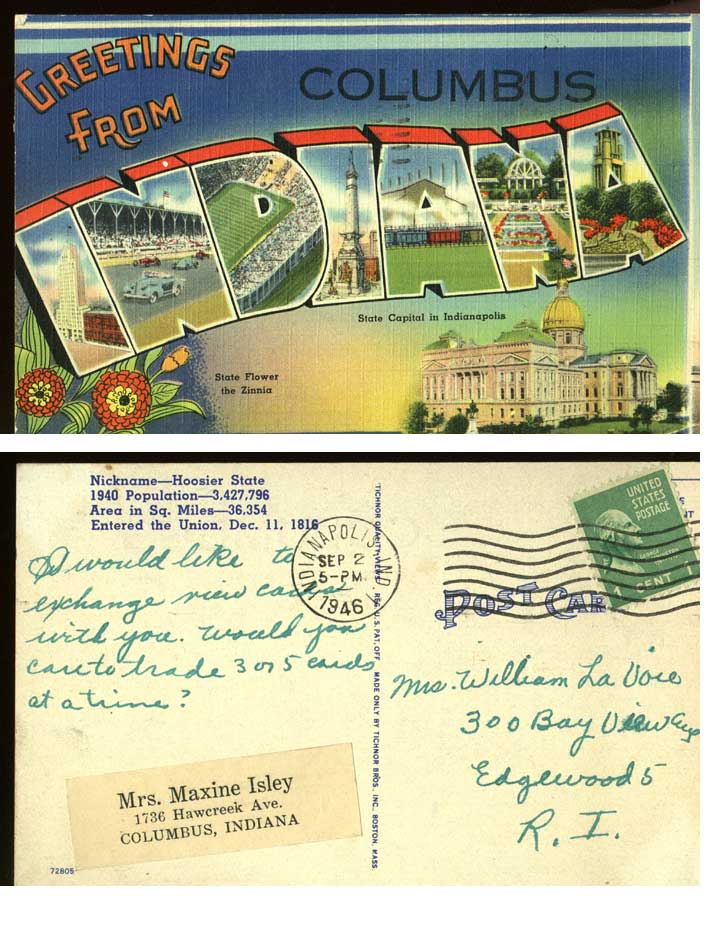 GREETINGS
FROM
COLUMBUS
INDIANA
State Capital in Indianapolis
State Flower
the Zinnia
Nickname—Hoosier State
1940 Population—3,427,796
Area in Sq. Miles—36,354
Entered the Union, Dec. 11, 1816
I would like to
exchange view cards
with you. Would you
care to trade 3 or 5 cards
at a time?
Mrs. Maxine Isley
1736 Hawcreek Ave.
COLUMBUS, INDIANA
72805
TICHNOR QUALITY VIEWS REG. U.S. PAT. OFF. MADE ONLY BY TICHNOR BROS., INC., BOSTON, MASS.
INDIANAPOLIS, IND.
SEP 2
5-PM
1946
UNITED
STATES
POSTAGE
1 CENT 1
POST CAR
Mrs. William La Voie
300 Bay View Ave
Edgewood 5
R. I.